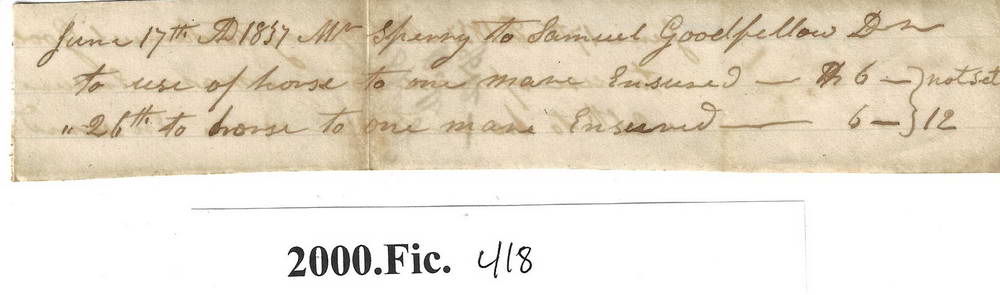 June 17th AD 1837 Mr Sperry to Samuel Goodfellow Dr
to use of horse to one mare Ensured — $6 — } not set
" 26th to horse to one mare Ensured — 6 — } 12
2000.Fic. 418